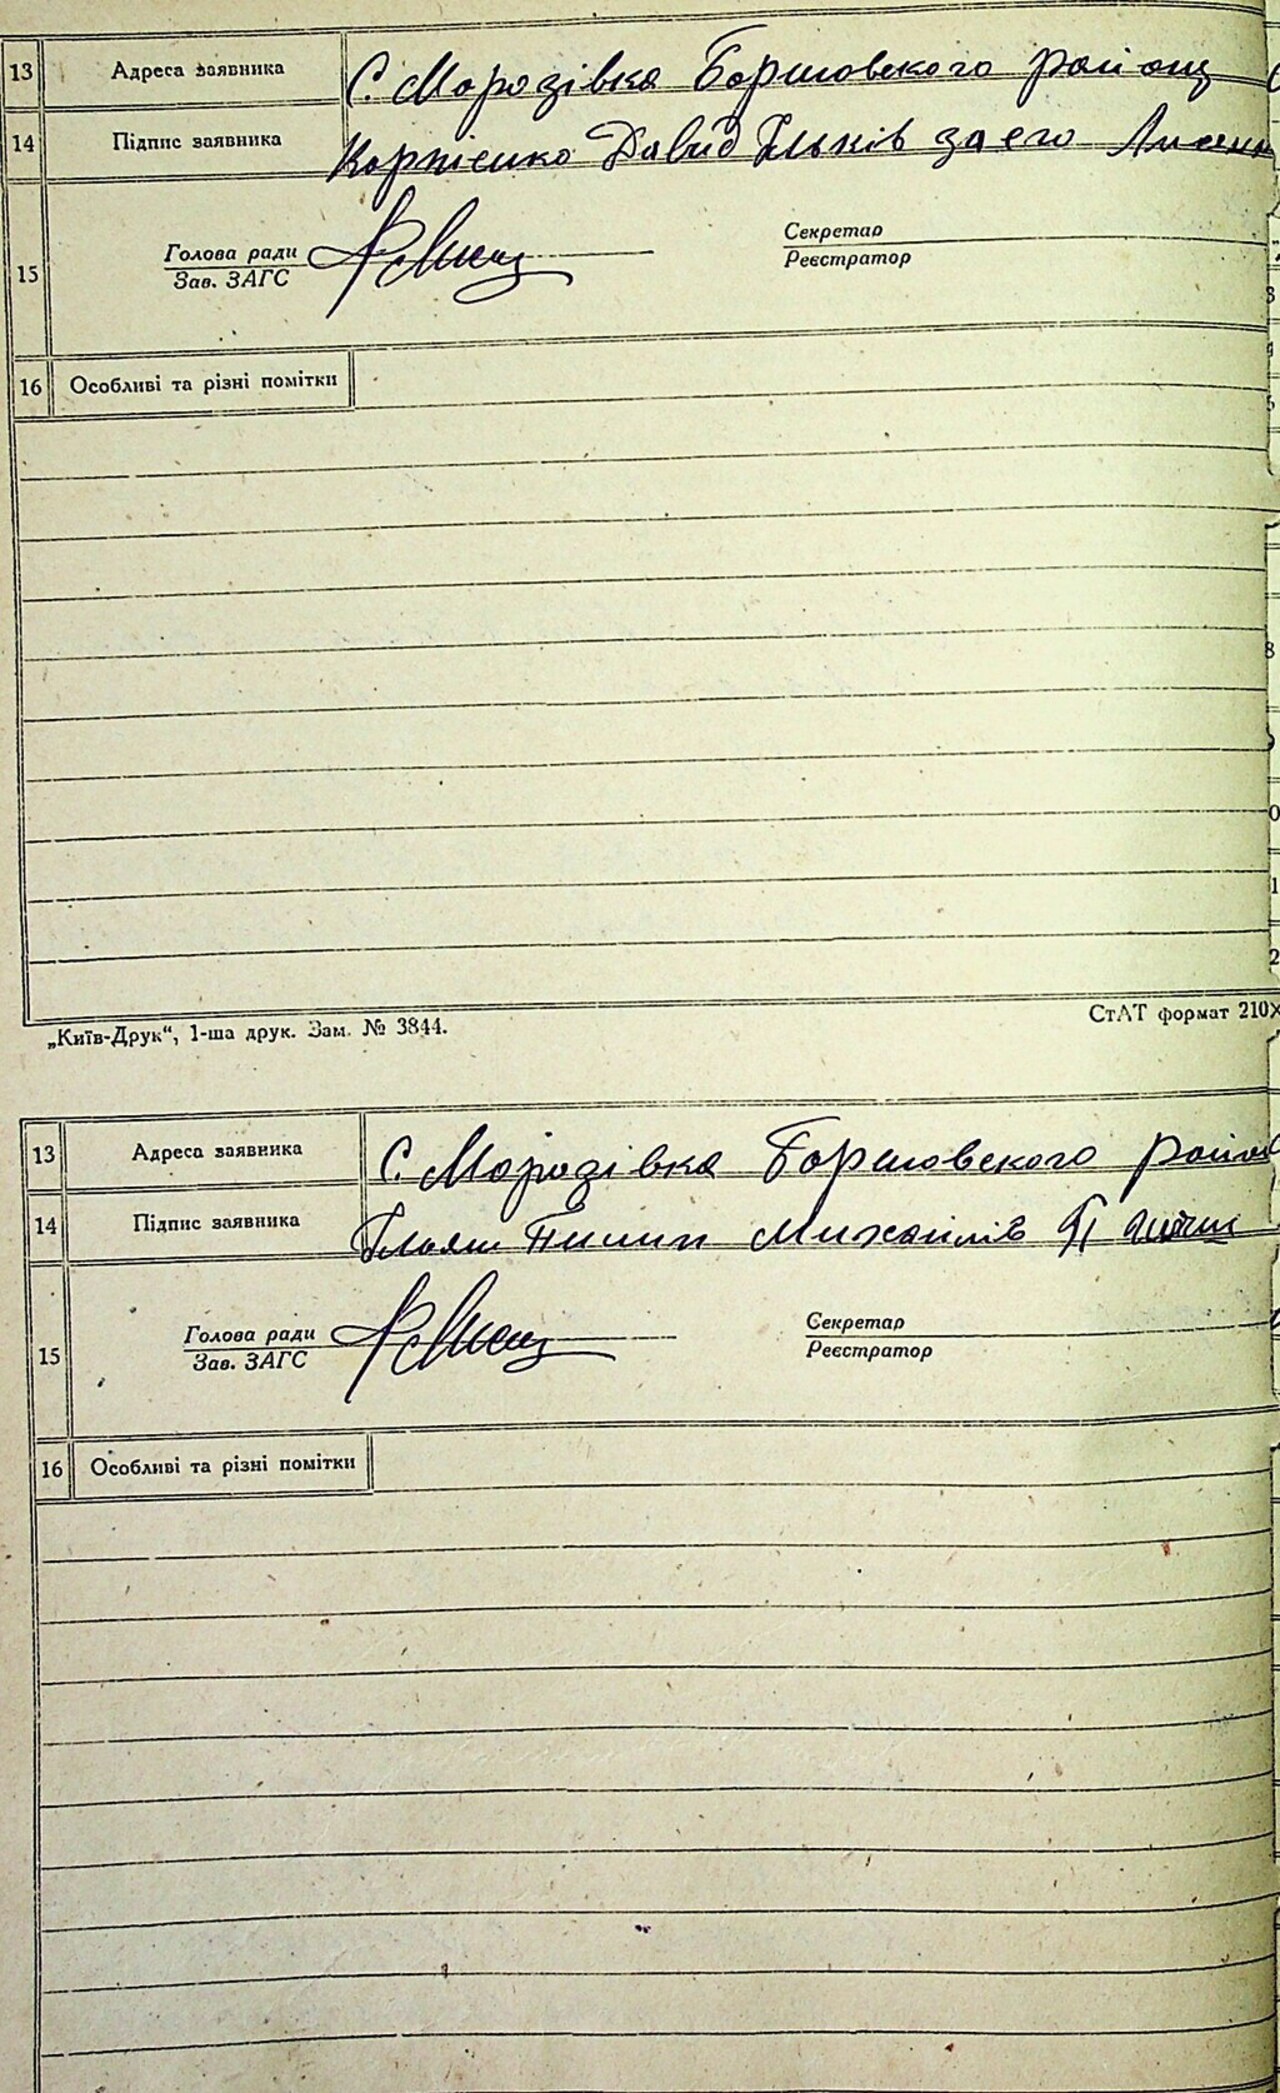 13 Адреса заявника С. Морозівка Боршовского району
14 Підпис заявника Корнієнко Давид Ільків за его
Голова ради Секретар
15
Зав. ЗАГС Реєстратор
16 Особливі та різні помітки
„Київ-Друк“, 1-ша друк. Зам. № 3844. СтАТ формат 210X
13 Адреса заявника С. Морозівка Боршовского
14 Підпис заявника Ільяш Пилип Михайлів
Голова ради Секретар
15
Зав. ЗАГС Реєстратор
16 Особливі та різні помітки